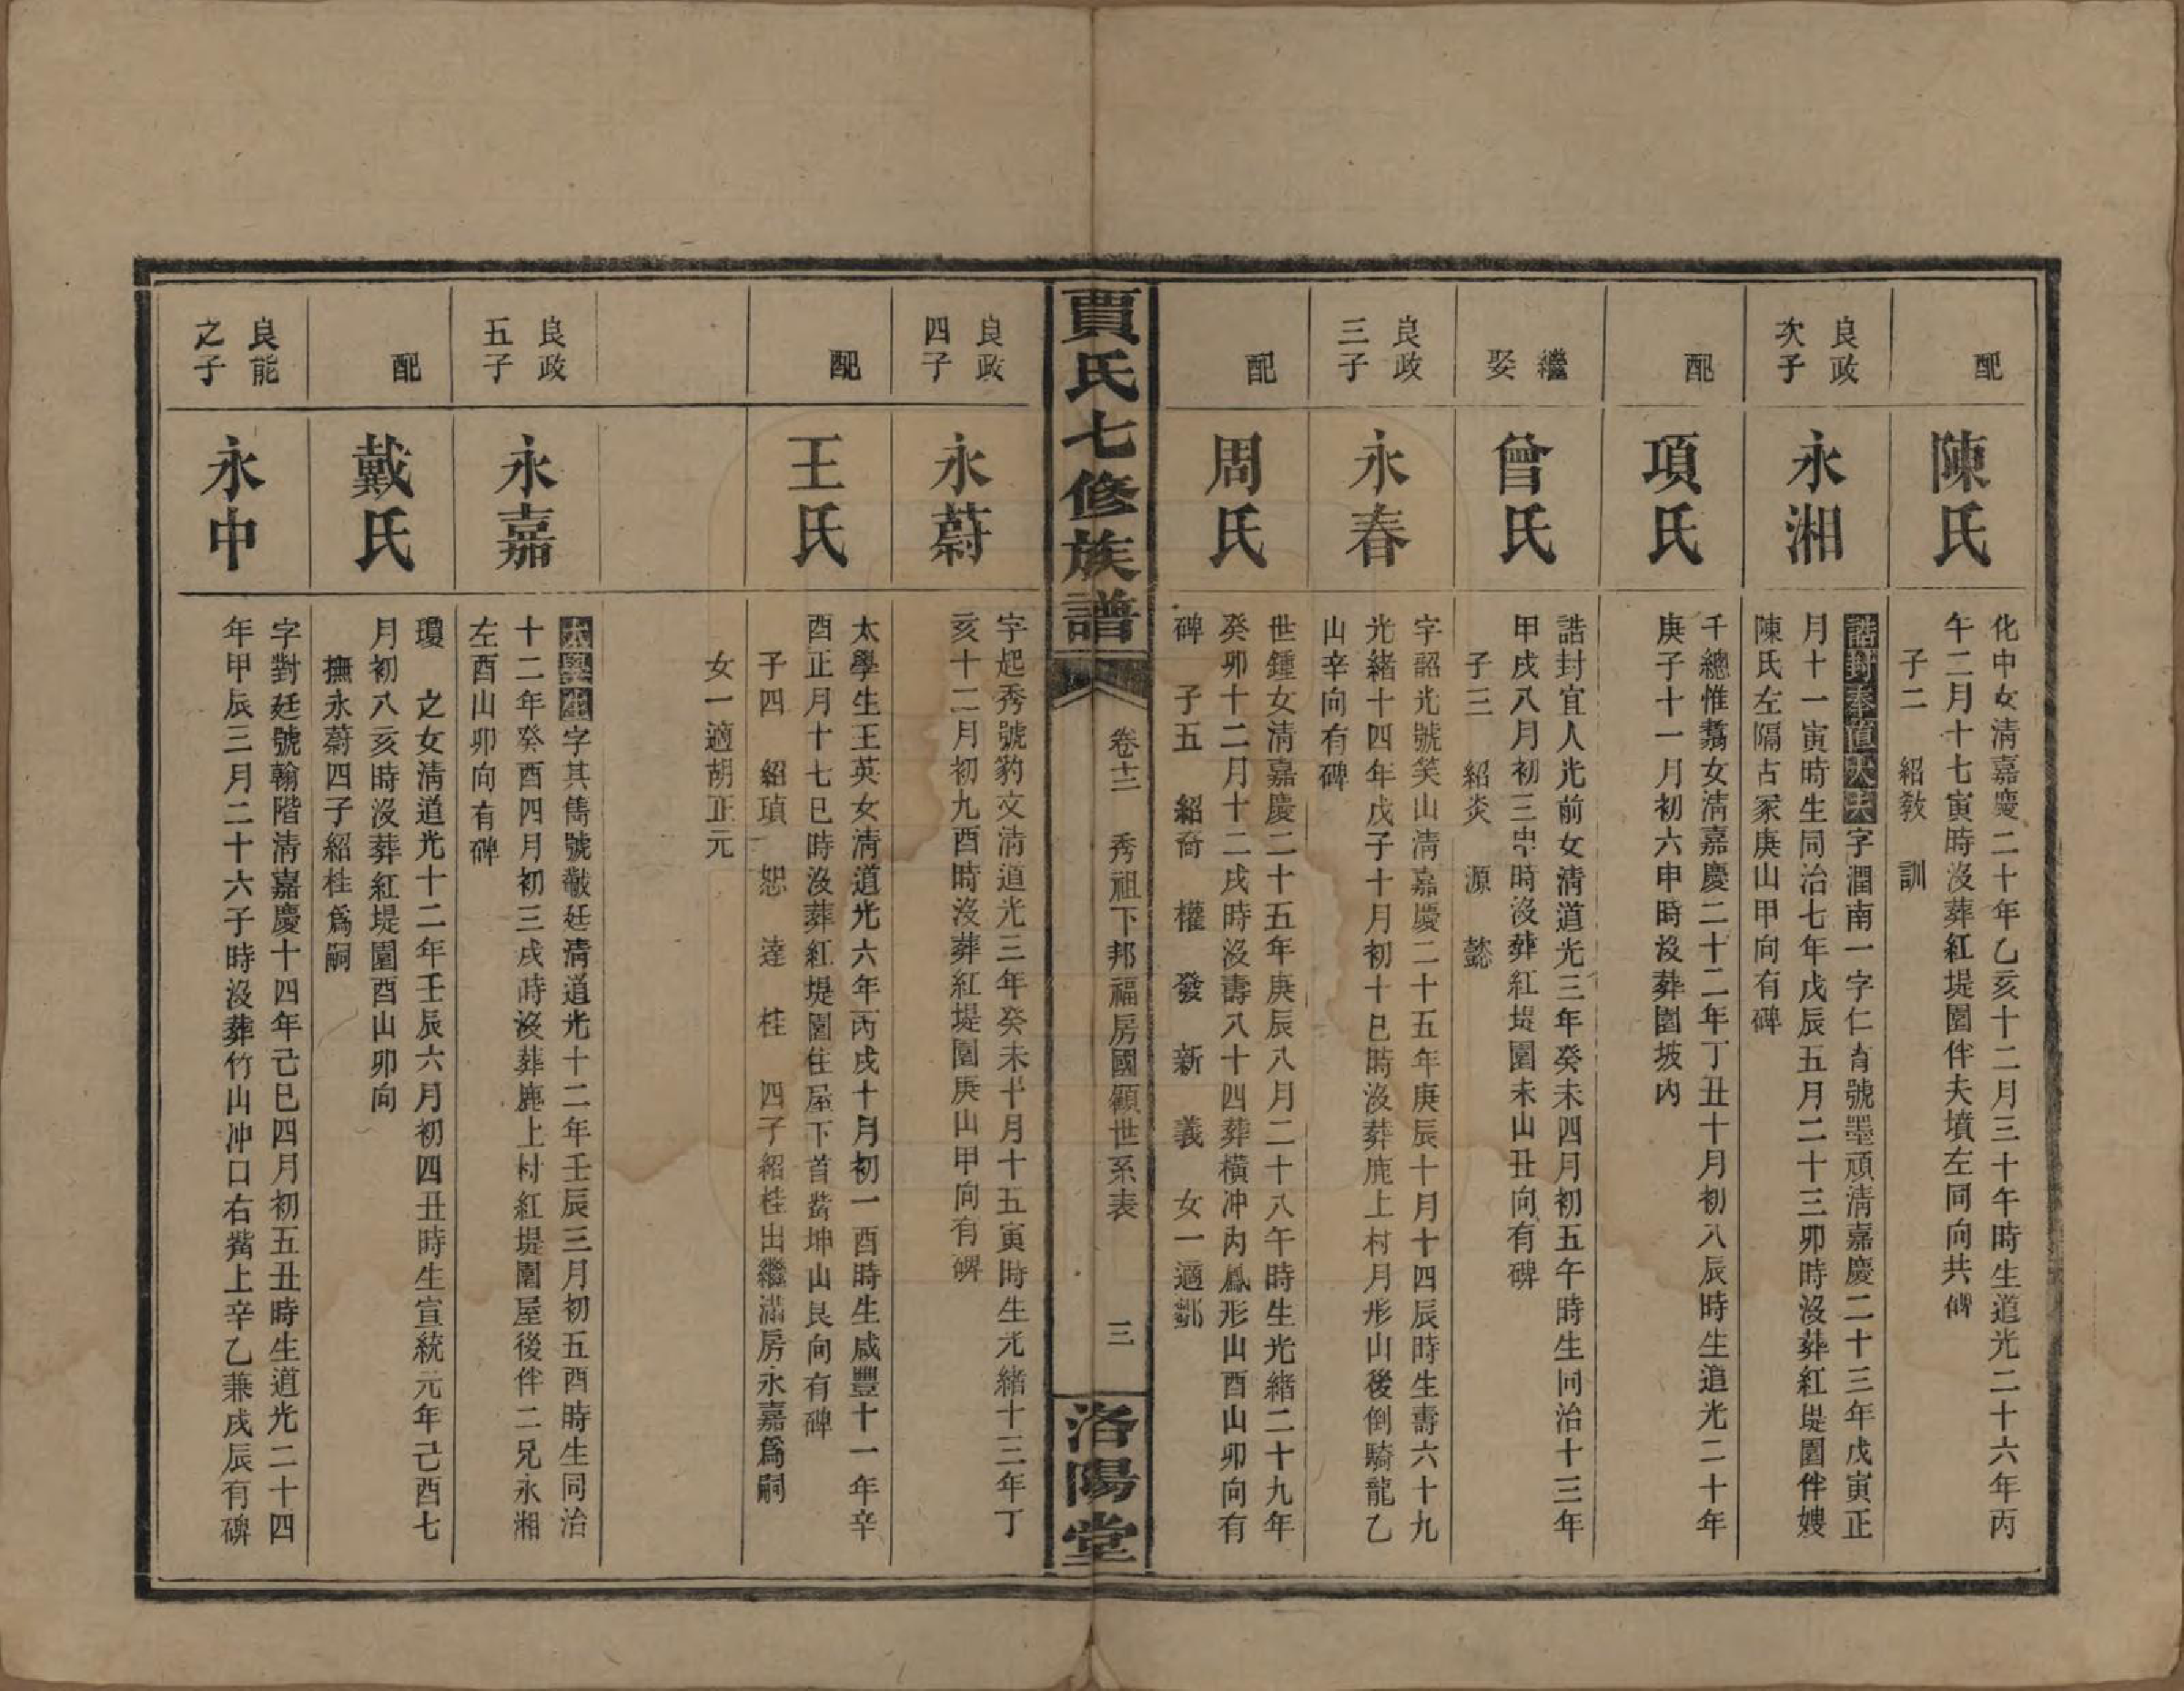 配
陳氏
化中女淸嘉慶二十年乙亥十二月三十午時生道光二十六年丙
午二月十七寅時沒葬紅堤園伴夫墳左同向共碑
子二　紹敎　訓
良政
次子
永湘
誥封奉直大夫字潤南一字仁育號墨頑淸嘉慶二十三年戊寅正
月十一寅時生同治七年戊辰五月二十三卯時沒葬紅堤園伴嫂
陳氏左隔古冢庚山甲向有碑
配
項氏
千總惟翥女淸嘉慶二十二年丁丑十月初八辰時生道光二十年
庚子十一月初六申時沒葬園坡內
繼
娶
曾氏
誥封宜人光前女淸道光三年癸未四月初五午時生同治十三年
甲戌八月初三時沒葬紅堤園未山丑向有碑
子三　紹炎　源　懿
良政
三子
永春
字韶光號笑山淸嘉慶二十五年庚辰十月十四辰時生壽六十九
光緒十四年戊子十月初十巳時沒葬鹿上村月形山後倒騎龍乙
山辛向有碑
配
周氏
世鍾女淸嘉慶二十五年庚辰八月二十八午時生光緒二十九年
癸卯十二月十二戌時沒壽八十四葬橫冲內鳳形山酉山卯向有
碑　子五　紹奇　權　發　新　義　女一適鄒
賈氏七修族譜
卷十二　秀祖下邦福房國顧世系表　三
洛陽堂
良政
四子
永蔚
字起秀號豹文淸道光三年癸未十月十五寅時生光緒十三年丁
亥十二月初九酉時沒葬紅堤園庚山甲向有碑
配
王氏
太學生王英女淸道光六年丙戌十月初一酉時生咸豐十一年辛
酉正月十七巳時沒葬紅堤園住屋下首嘴坤山艮向有碑
子四　紹瑱　恕　達　桂　四子紹桂出繼滿房永嘉爲嗣
女一適胡正元
良政
五子
永嘉
太學生字其雋號黻廷淸道光十二年壬辰三月初五酉時生同治
十二年癸酉四月初三戌時沒葬鹿上村紅堤園屋後伴二兄永湘
左酉山卯向有碑
配
戴氏
瓊　之女淸道光十二年壬辰六月初四丑時生宣統元年己酉七
月初八亥時沒葬紅堤園酉山卯向
撫永蔚四子紹桂爲嗣
良能
之子
永中
字對廷號翰階淸嘉慶十四年己巳四月初五丑時生道光二十四
年甲辰三月二十六子時沒葬竹山冲口右嘴上辛乙兼戌辰有碑